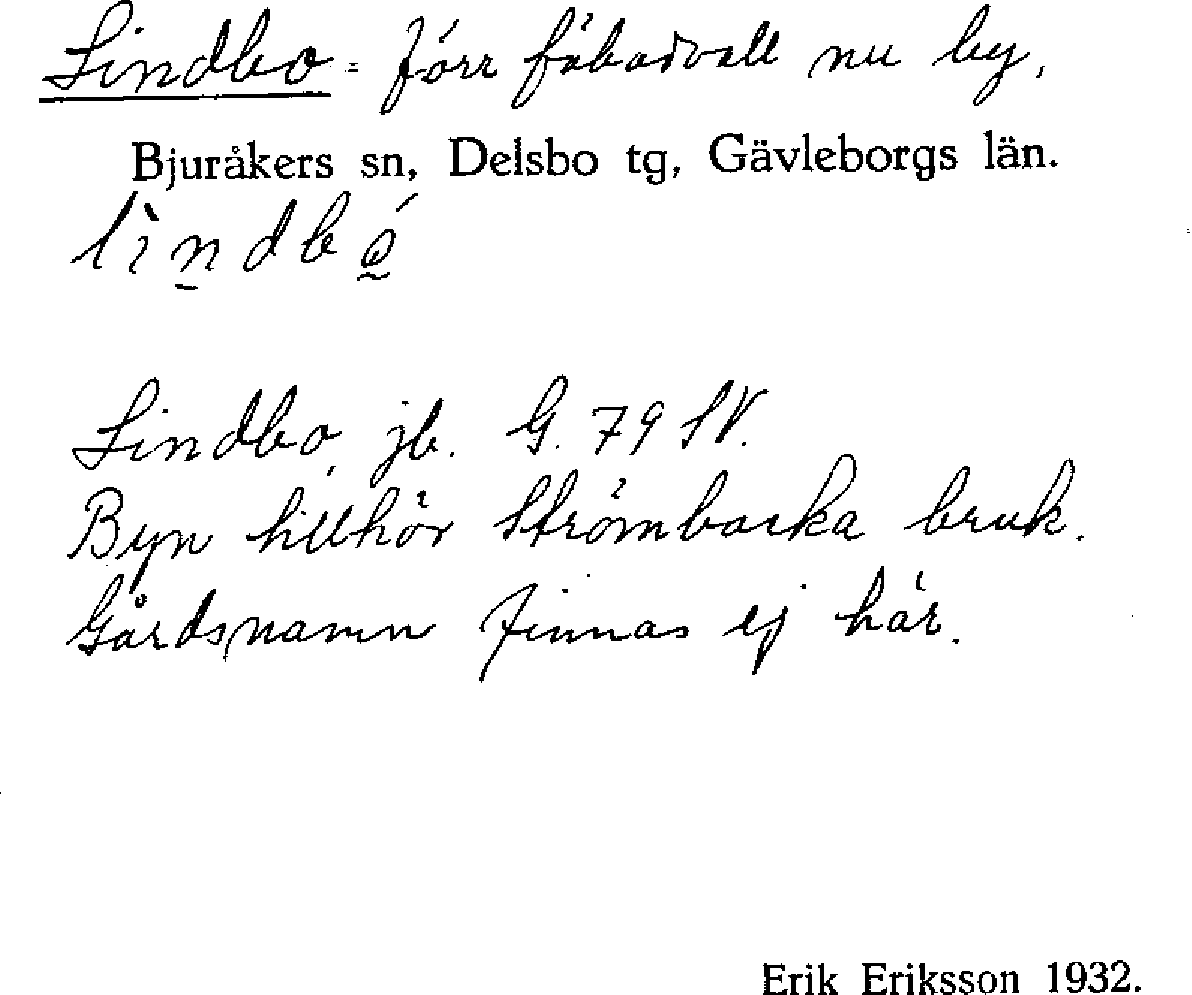 Lindbo = förr fäbodvall nu by.
Bjuråkers sn, Delsbo tg, Gävleborgs län.
lìndbó
Lindbo, jb. G. 79 SV.
Byn tillhör Strömbacka bruk.
Gårdsnamn finnas ej här.
Erik Eriksson 1932.